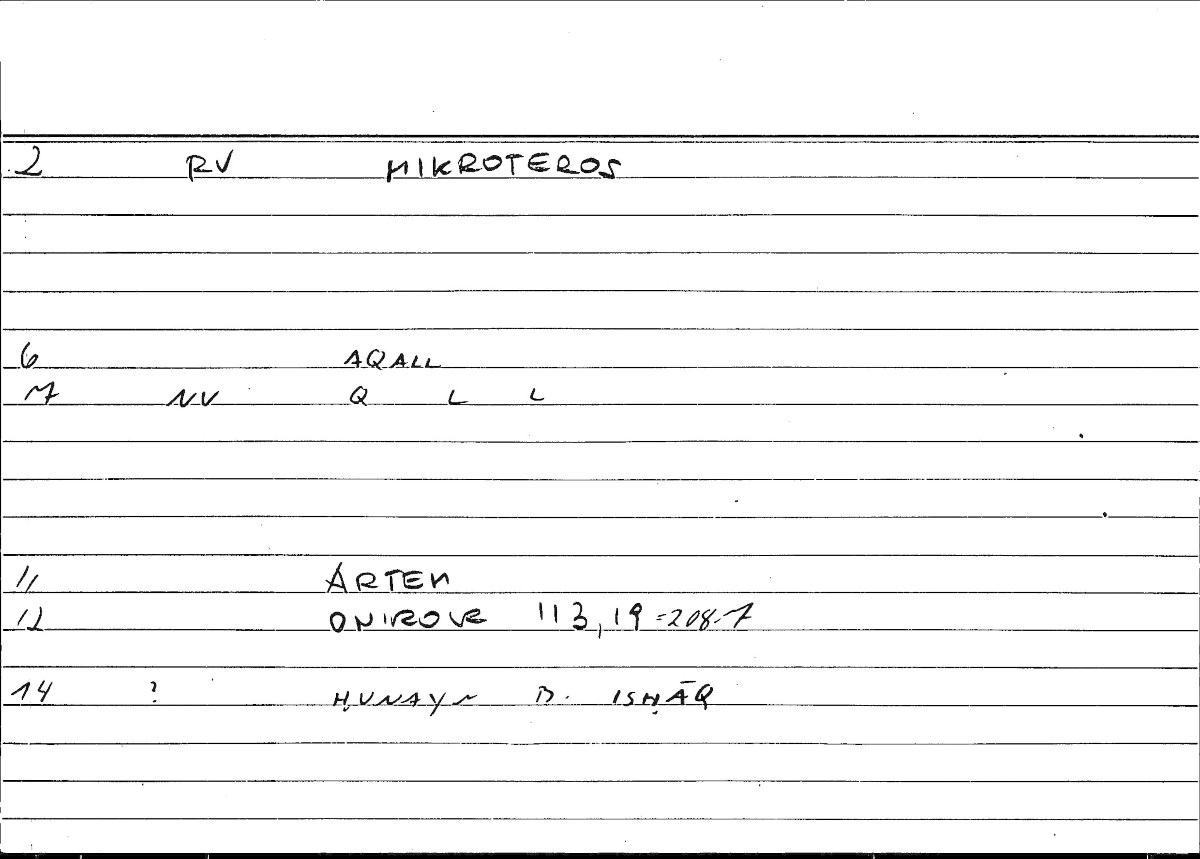 2 RV MIKROTEROS
6 AQALL
7 NV Q L L
11 ARTEM
12 ONIROCR 113,19 = 208.7
14 ? ḤUNAYN B. ISḤĀQ